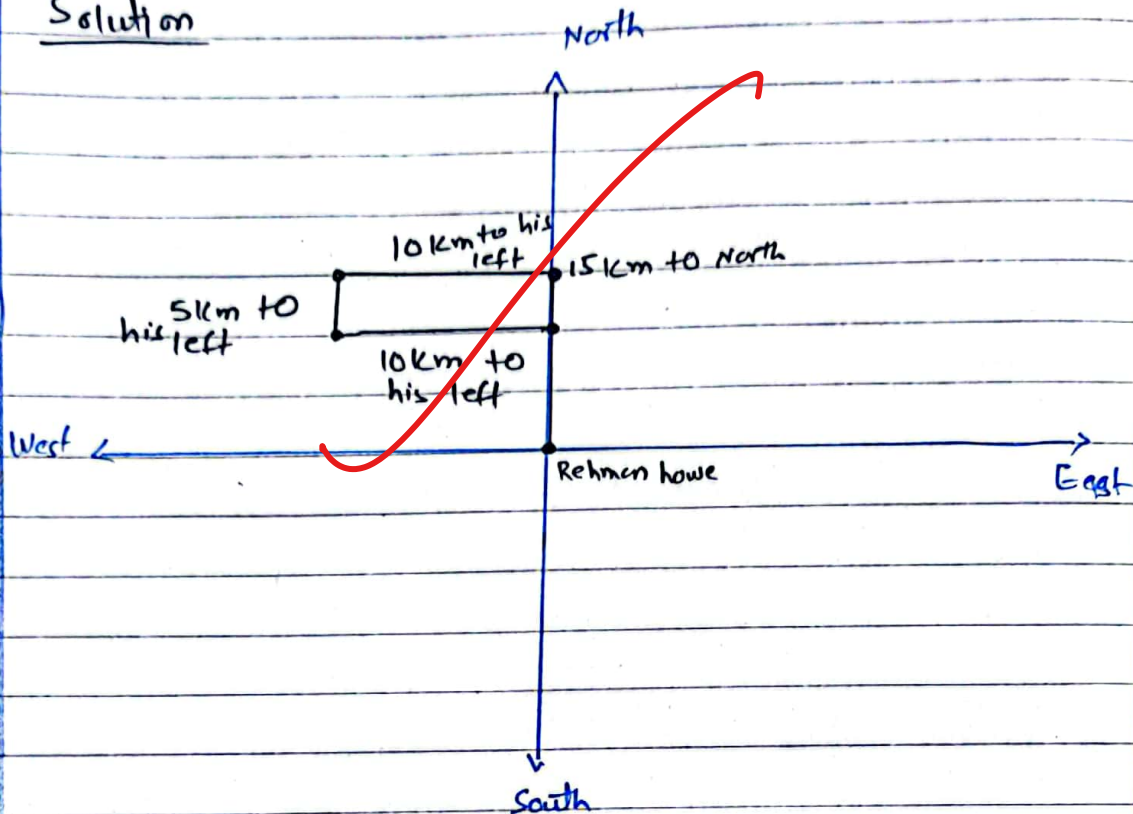 Solution
North
10 km to his
left
15 km to North
5 km to
his left
10 km to
his left
West
East
Rehman howe
South